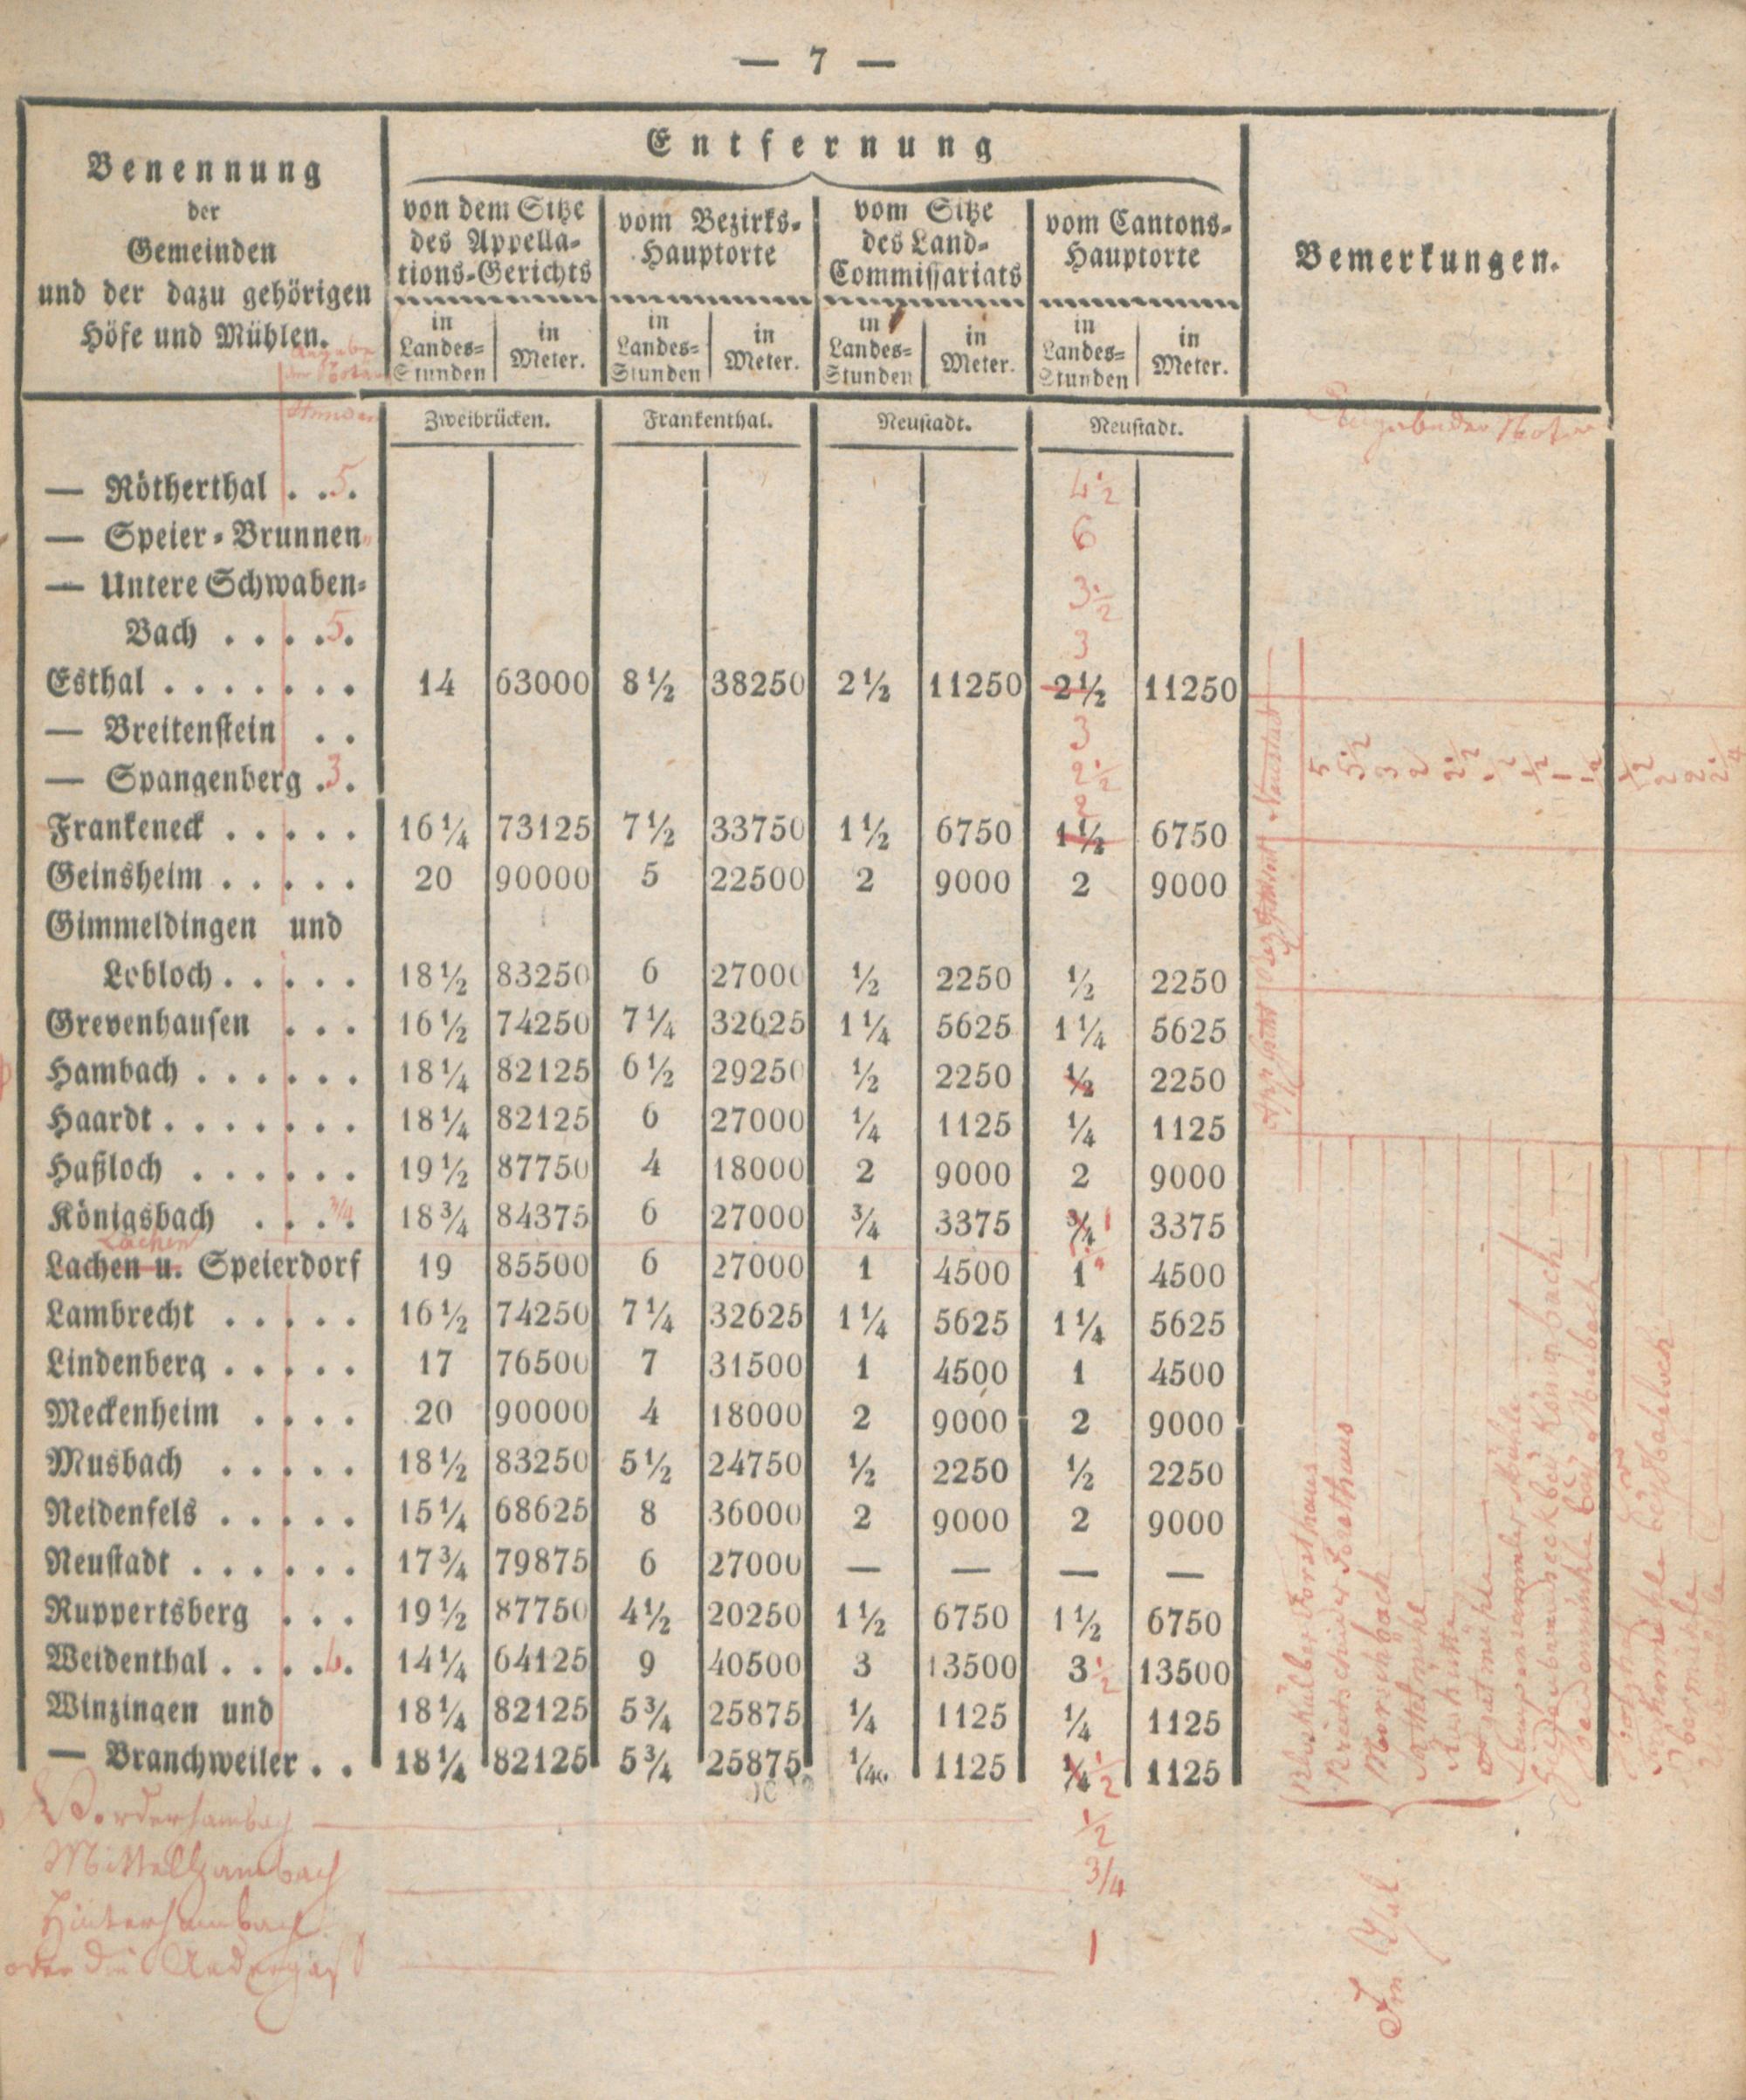 — 7 —
Benennung
der
Gemeinden
und der dazu gehörigen
Höfe und Mühlen.
Entfernung
von dem Sitze
des Appella-
tions-Gerichts
vom Bezirks-
Hauptorte
vom Sitze
des Land-
Commissariats
vom Cantons-
Hauptorte
Bemerkungen.
in Landes-Stunden | in Meter. | in Landes-Stunden | in Meter. | in Landes-Stunden | in Meter. | in Landes-Stunden | in Meter.
Stunden
Zweibrücken. Frankenthal. Neustadt. Neustadt.
— Rötherthal . . 5. 4½
— Speier-Brunnen 6
— Untere Schwaben- 3½
Bach . . . . 5. 3
Esthal . . . . . . . 14 63000 8½ 38250 2½ 11250 2½ 11250
— Breitenstein . . 3
— Spangenberg . 3. 2½
Frankeneck . . . . . 16¼ 73125 7½ 33750 1½ 6750 1½ 6750
Geinsheim . . . . . 20 90000 5 22500 2 9000 2 9000
Gimmeldingen und
Lobloch . . . . . 18½ 83250 6 27000 ½ 2250 ½ 2250
Grevenhausen . . . 16½ 74250 7¼ 32625 1¼ 5625 1¼ 5625
Hambach . . . . . . 18¼ 82125 6½ 29250 ½ 2250 ½ 2250
Haardt . . . . . . . 18¼ 82125 6 27000 ¼ 1125 ¼ 1125
Haßloch . . . . . . 19½ 87750 4 18000 2 9000 2 9000
Königsbach . . . . ¾ 18¾ 84375 6 27000 ¾ 3375 ¾ 1 3375
Lachen
Lachen u. Speierdorf 19 85500 6 27000 1 4500 1 4500
Lambrecht . . . . . 16½ 74250 7¼ 32625 1¼ 5625 1¼ 5625
Lindenberg . . . . . 17 76500 7 31500 1 4500 1 4500
Meckenheim . . . . 20 90000 4 18000 2 9000 2 9000
Musbach . . . . . 18½ 83250 5½ 24750 ½ 2250 ½ 2250
Neidenfels . . . . . 15¼ 68625 8 36000 2 9000 2 9000
Neustadt . . . . . . 17¾ 79875 6 27000 — — — —
Ruppertsberg . . . 19½ 87750 4½ 20250 1½ 6750 1½ 6750
Weidenthal . . . . 6. 14¼ 64125 9 40500 3 13500 3 ½ 13500
Winzingen und 18¼ 82125 5¾ 25875 ¼ 1125 ¼ 1125
— Branchweiler . . 18¼ 82125 5¾ 25875 ¼ 1125 ¼ ½ 1125
Vorderhambach ½
Mittelhambach ¾
Hinterhambach
oder die 1
Neustadt
Forsthaus
Forsthaus
Morschbach
bei Königsbach
Musbach
Im Thal